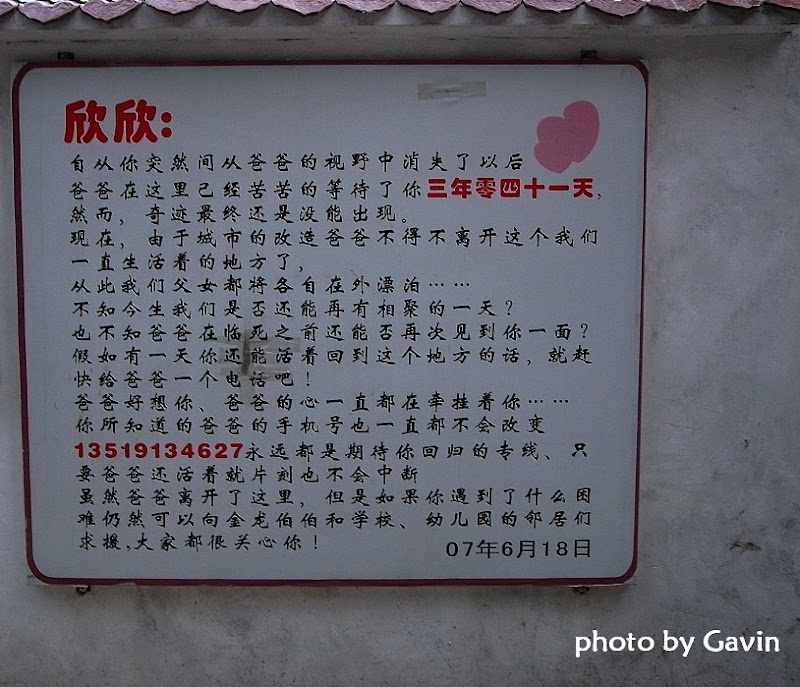 欣欣:
自从你突然间从爸爸的视野中消失了以后
爸爸在这里已经苦苦的等待了你三年零四十一天,
然而，奇迹最终还是没能出现。
现在，由于城市的改造爸爸不得不离开这个我们
一直生活着的地方了，
从此我们父女都将各自在外漂泊……
不知今生我们是否还能再有相聚的一天？
也不知爸爸在临死之前还能否再次见到你一面？
假如有一天你还能活着回到这个地方的话，就赶
快给爸爸一个电话吧！
爸爸好想你、爸爸的心一直都在牵挂着你……
你所知道的爸爸的手机号也一直都不会改变
13519134627永远都是期待你回归的专线、只
要爸爸还活着就片刻也不会中断
虽然爸爸离开了这里，但是如果你遇到了什么困
难仍然可以向金龙伯伯和学校、幼儿园的邻居们
求援,大家都很关心你！
07年6月18日
photo by Gavin